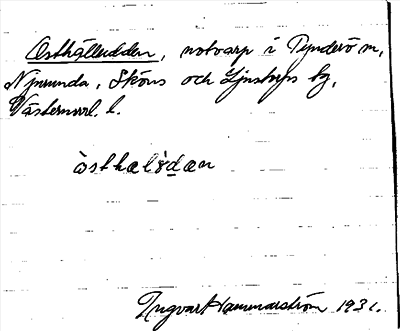 Osthälludden, notvarp i Tynderö sn,
Njurunda, Sköns och Ljustorps tg,
Västernorrl. l.
östhæludæn
Ingvar Hammarström 1931.